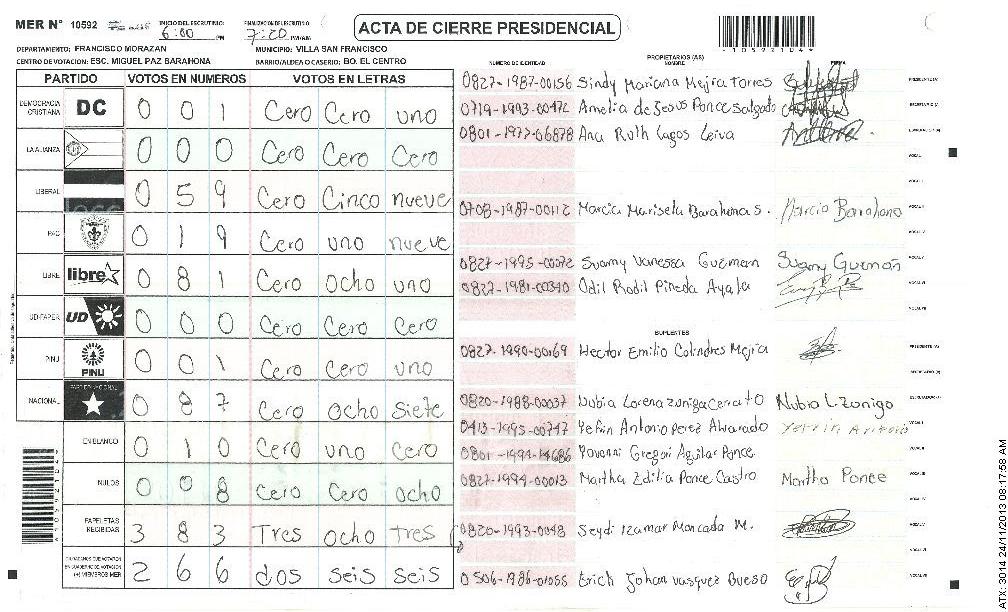 MER N° 10592 INICIO DEL ESCRUTINIO: 6:00 PM FINALIZACIÓN DEL ESCRUTINIO: 7:20 PM/AM
ACTA DE CIERRE PRESIDENCIAL
10592104
DEPARTAMENTO: FRANCISCO MORAZAN MUNICIPIO: VILLA SAN FRANCISCO
CENTRO DE VOTACION: ESC. MIGUEL PAZ BARAHONA BARRIO/ALDEA O CASERIO: BO. EL CENTRO
PARTIDO VOTOS EN NUMEROS VOTOS EN LETRAS
DEMOCRACIA CRISTIANA DC 0 0 1 Cero Cero uno
LA ALIANZA 0 0 0 Cero Cero Cero
LIBERAL 0 5 9 Cero Cinco nueve
PAC 0 1 9 Cero uno nueve
LIBRE libre 0 8 1 Cero ocho uno
UD-FAPER UD 0 0 0 Cero Cero Cero
PINU PINU 0 0 1 Cero Cero uno
NACIONAL PARTIDO NACIONAL 0 8 7 Cero ocho siete
EN BLANCO 0 1 0 Cero uno Cero
NULOS 0 0 8 Cero Cero ocho
PAPELETAS RECIBIDAS 3 8 3 Tres ocho tres
CIUDADANOS QUE VOTARON EN CUADERNO DE VOTACION (+) MIEMBROS MER 2 6 6 dos seis seis
NUMERO DE IDENTIDAD PROPIETARIOS (AS) NOMBRE FIRMA
0827-1987-00156 Sindy Mariana Mejia Torres PRESIDENTE (A)
0719-1993-00472 Amelia de Jesus Ponce Salgado SECRETARIO (A)
0801-1977-06878 Ana Ruth Lagos Leiva ESCRUTADOR (A)
VOCAL I
VOCAL II
0708-1987-00112 Marcia Marisela Barahona S. Marcia Barahona VOCAL III
VOCAL IV
0827-1995-00072 Suamy Vanessa Guzman Suamy Guzmán VOCAL V
0827-1981-00340 Odil Rodil Pineda Ayala VOCAL VI
VOCAL VII
SUPLENTES
0827-1990-00169 Hector Emilio Colindres Mejia PRESIDENTE (A)
SECRETARIO (A)
0820-1988-00037 Nubia Lorena zuniga Cerrato Nubia L. Zuniga ESCRUTADOR (A)
0413-1995-00747 Yefrin Antonio Perez Alvarado VOCAL I
0801-1994-14686 Yovanni Gregori Aguilar Ponce VOCAL II
0827-1994-00013 Martha Edilia Ponce Castro Martha Ponce VOCAL III
VOCAL IV
0820-1993-0048 Seydi Izamar Moncada M. VOCAL V
VOCAL VI
0506-1986-01055 Erich Johan vasquez Bueso VOCAL VII
ATX-3014 24/11/2013 08:17:58 AM